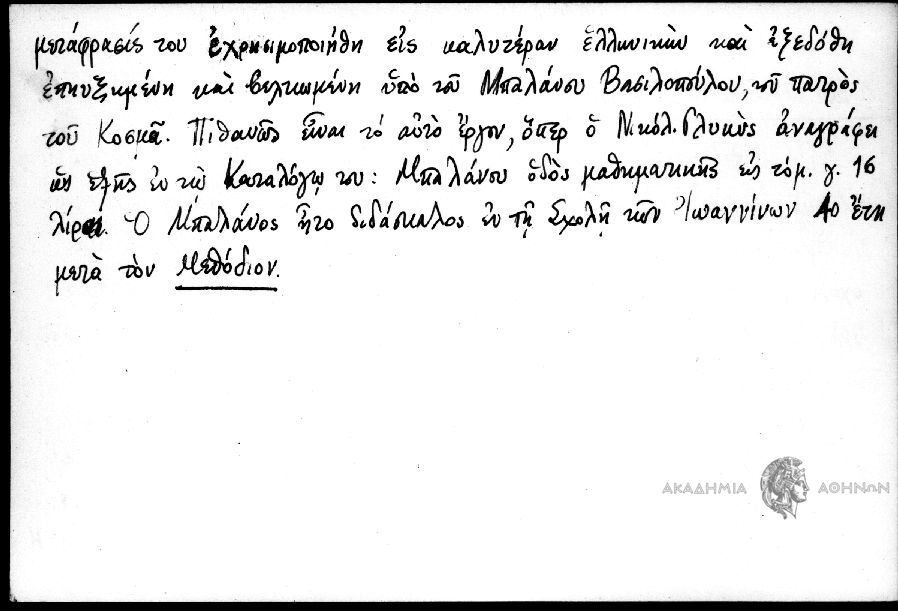 μετάφρασίς του ἐχρησιμοποιήθη εἰς καλυτέραν ἑλληνικὴν καὶ ἐξεδόθη
ἐπηυξημένη καὶ βελτιωμένη ὑπὸ τοῦ Μπαλάνου Βασιλοπούλου, τοῦ πατρὸς
τοῦ Κοσμᾶ. Πιθανῶς εἶναι τὸ αὐτὸ ἔργον, ὅπερ ὁ Νικόλ. Γλυκὺς ἀναγράφει
ὡς ἑξῆς ἐν τῷ Καταλόγῳ του: Μπαλάνου ὁδὸς μαθηματικῆς εἰς τόμ. γ. 16
λίραι. Ὁ Μπαλάνος ἦτο διδάσκαλος ἐν τῇ Σχολῇ τῶν Ἰωαννίνων 40 ἔτη
μετὰ τὸν Μεθόδιον.
ΑΚΑΔΗΜΙΑ ΑΘΗΝΩΝ